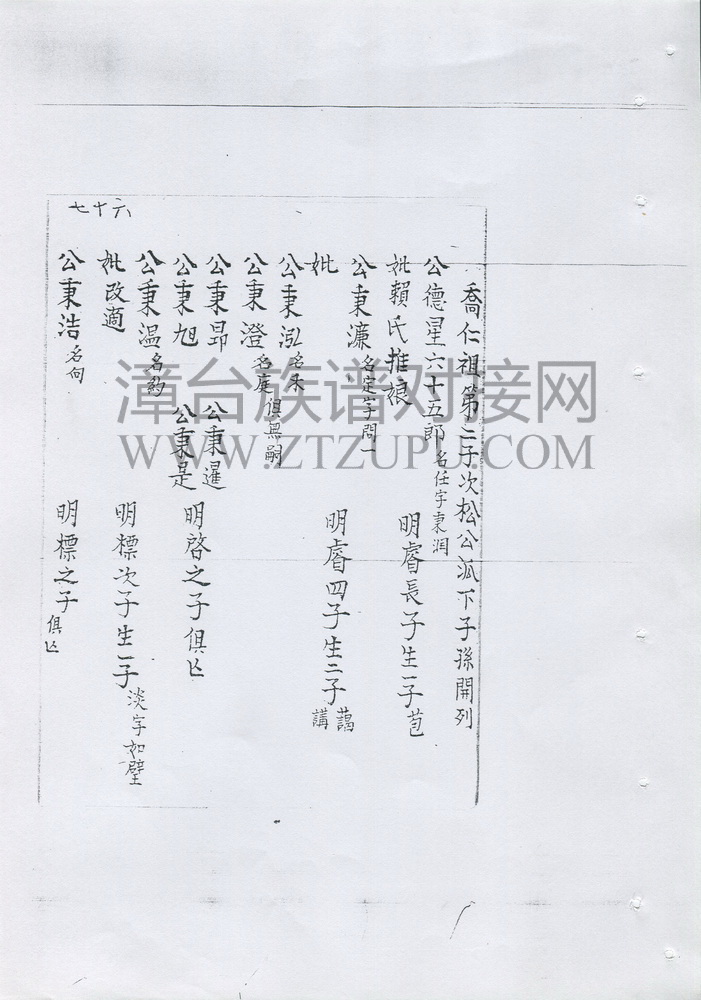 喬仁祖第二子次松公派下子孫開列
公德星六十五郎 名任字東润
妣賴氏推娘 明睿長子生一子 苞
公秉濂 名定字問一
妣 明睿四子生二子 藹 講
公秉泓 名承 俱無嗣
公秉澄 名庭
公秉昂 公秉暹
公秉旭 公秉是 明啓之子俱亾
公秉温 名約
妣改適 明標次子生一子 淡字如壁
公秉浩 名向 明標之子 俱亾
七十六
漳台族谱对接网
WWW.ZTZUPU.COM